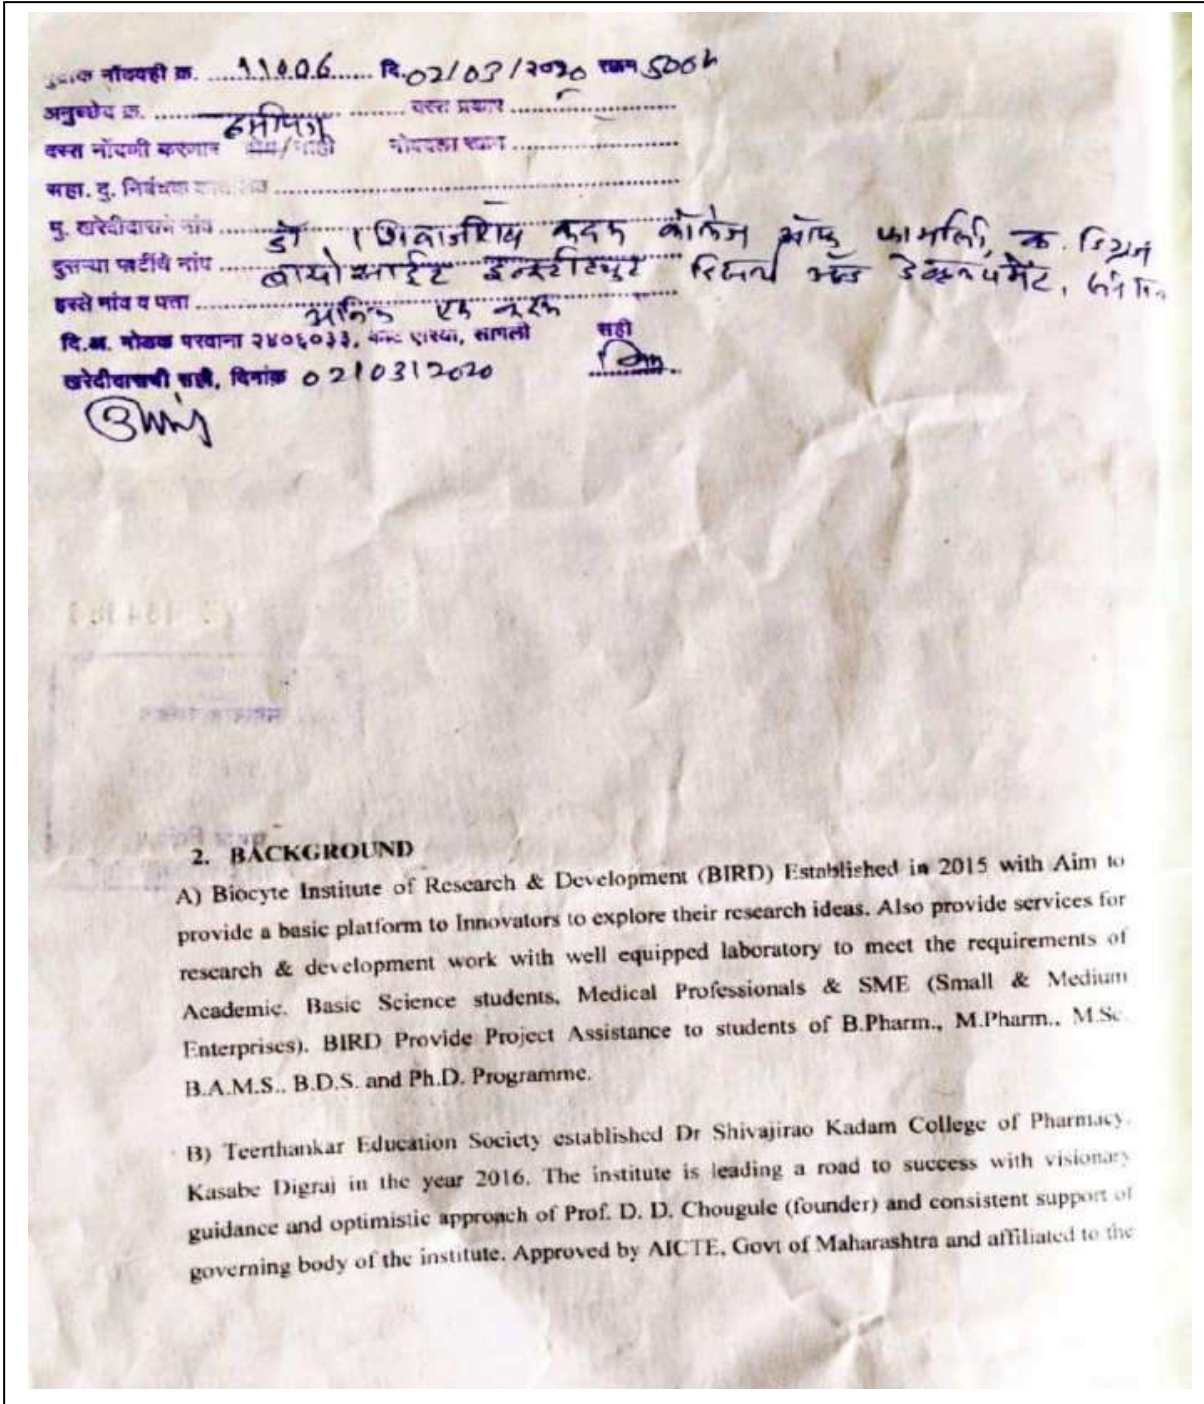 मुद्रांक नोंदवही क्र. 11006 दि. 02/03/2020 रक्कम 500/-
अनुच्छेद क्र. दस्त प्रकार
दस्त नोंदणी करणार होय/नाही नोंदणी
सहा. दु. निबंधक
मु. खरेदीदाराचे नांव डॉ. शिवाजीराव कदम कॉलेज ऑफ फार्मसी, क. डिग्रज
दुसऱ्या पार्टीचे नांव बायोसाईट इन्स्टीट्युट रिसर्च अँड डेव्हलपमेंट,
हस्ते नांव व पत्ता
दि.अ. मोडक परवाना २४०६०३३, सांगली सही
खरेदीदाराची सही, दिनांक 02/03/2020
2. BACKGROUND
A) Biocyte Institute of Research & Development (BIRD) Established in 2015 with Aim to
provide a basic platform to Innovators to explore their research ideas. Also provide services for
research & development work with well equipped laboratory to meet the requirements of
Academic. Basic Science students, Medical Professionals & SME (Small & Medium
Enterprises). BIRD Provide Project Assistance to students of B.Pharm., M.Pharm., M.Sc.
B.A.M.S., B.D.S. and Ph.D. Programme.
B) Teerthankar Education Society established Dr Shivajirao Kadam College of Pharmacy.
Kasabe Digraj in the year 2016. The institute is leading a road to success with visionary
guidance and optimistic approach of Prof. D. D. Chougule (founder) and consistent support of
governing body of the institute. Approved by AICTE, Govt of Maharashtra and affiliated to the